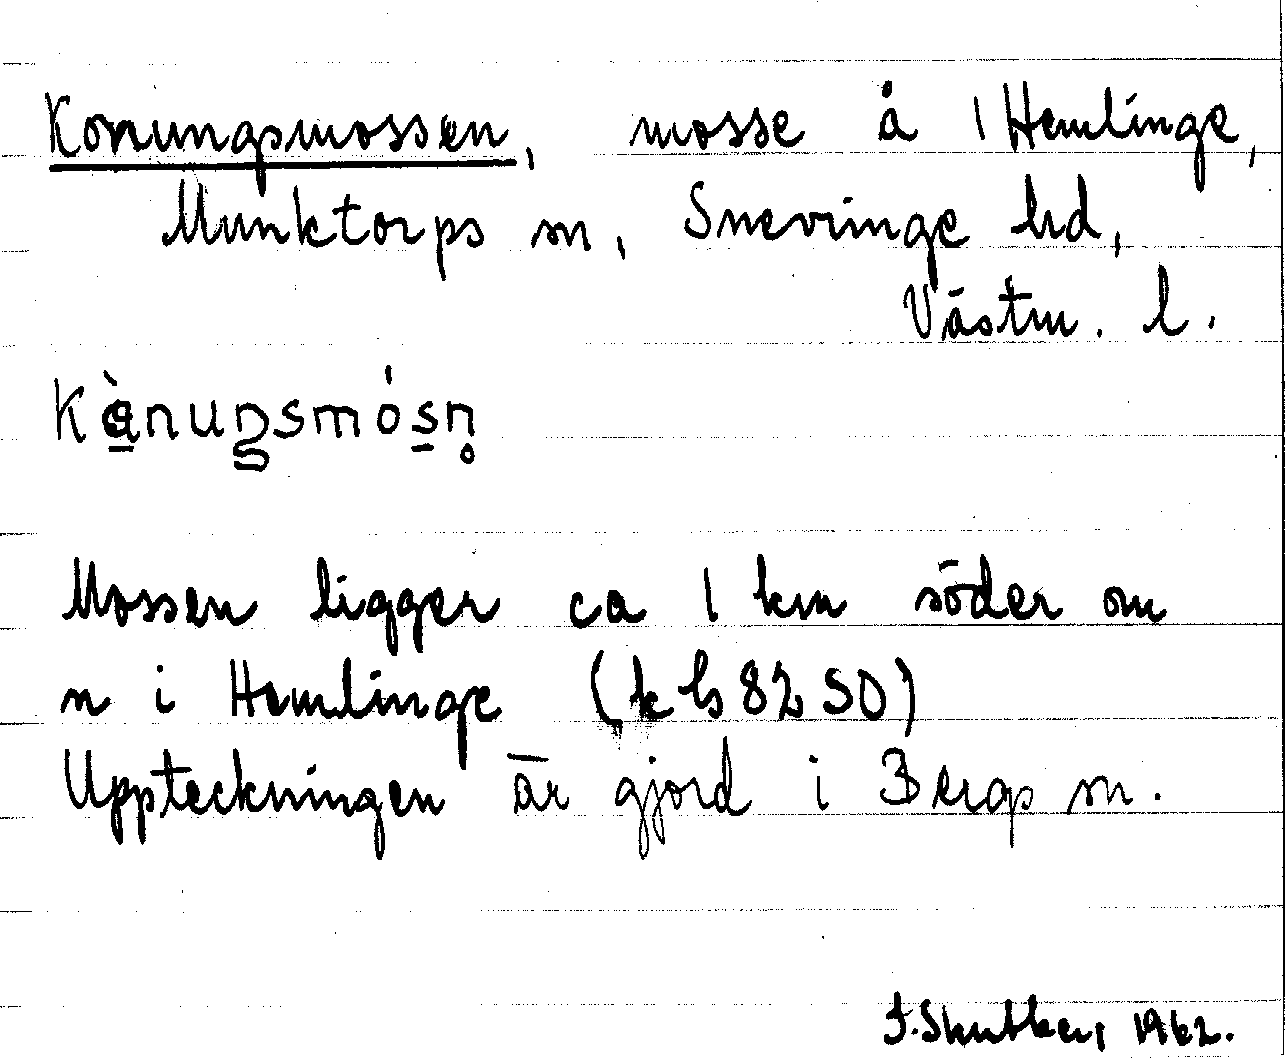 Konungsmossen, mosse å 1 Hemlinge,
Munktorps sn, Snevringe hd,
Västm. l.
Kànuŋsmósn̥
Mossen ligger ca 1 km söder om
n i Hemlinge (kb 82 50)
Uppteckningen är gjord i Bergs sn.
1962.